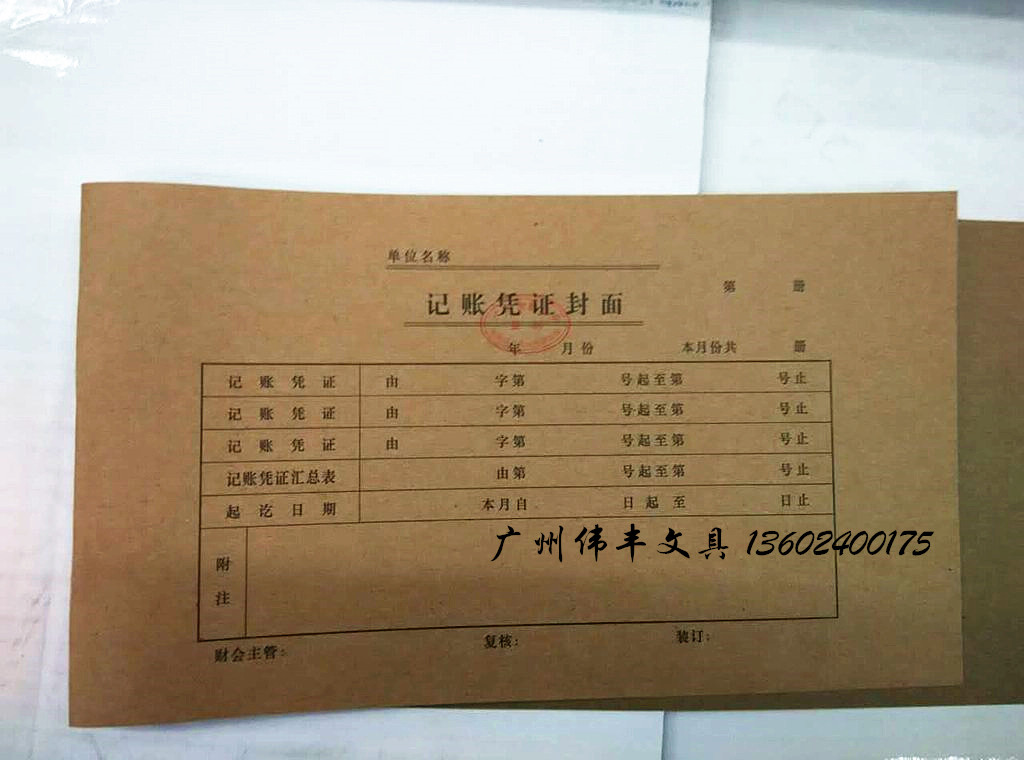 单位名称
第 册
记账凭证封面
年 月份 本月份共 册
记账凭证 由 字第 号起至第 号止
记账凭证 由 字第 号起至第 号止
记账凭证 由 字第 号起至第 号止
记账凭证汇总表 由第 号起至第 号止
起讫日期 本月自 日起至 日止
广州伟丰文具 13602400175
附注
财会主管: 复核: 装订: